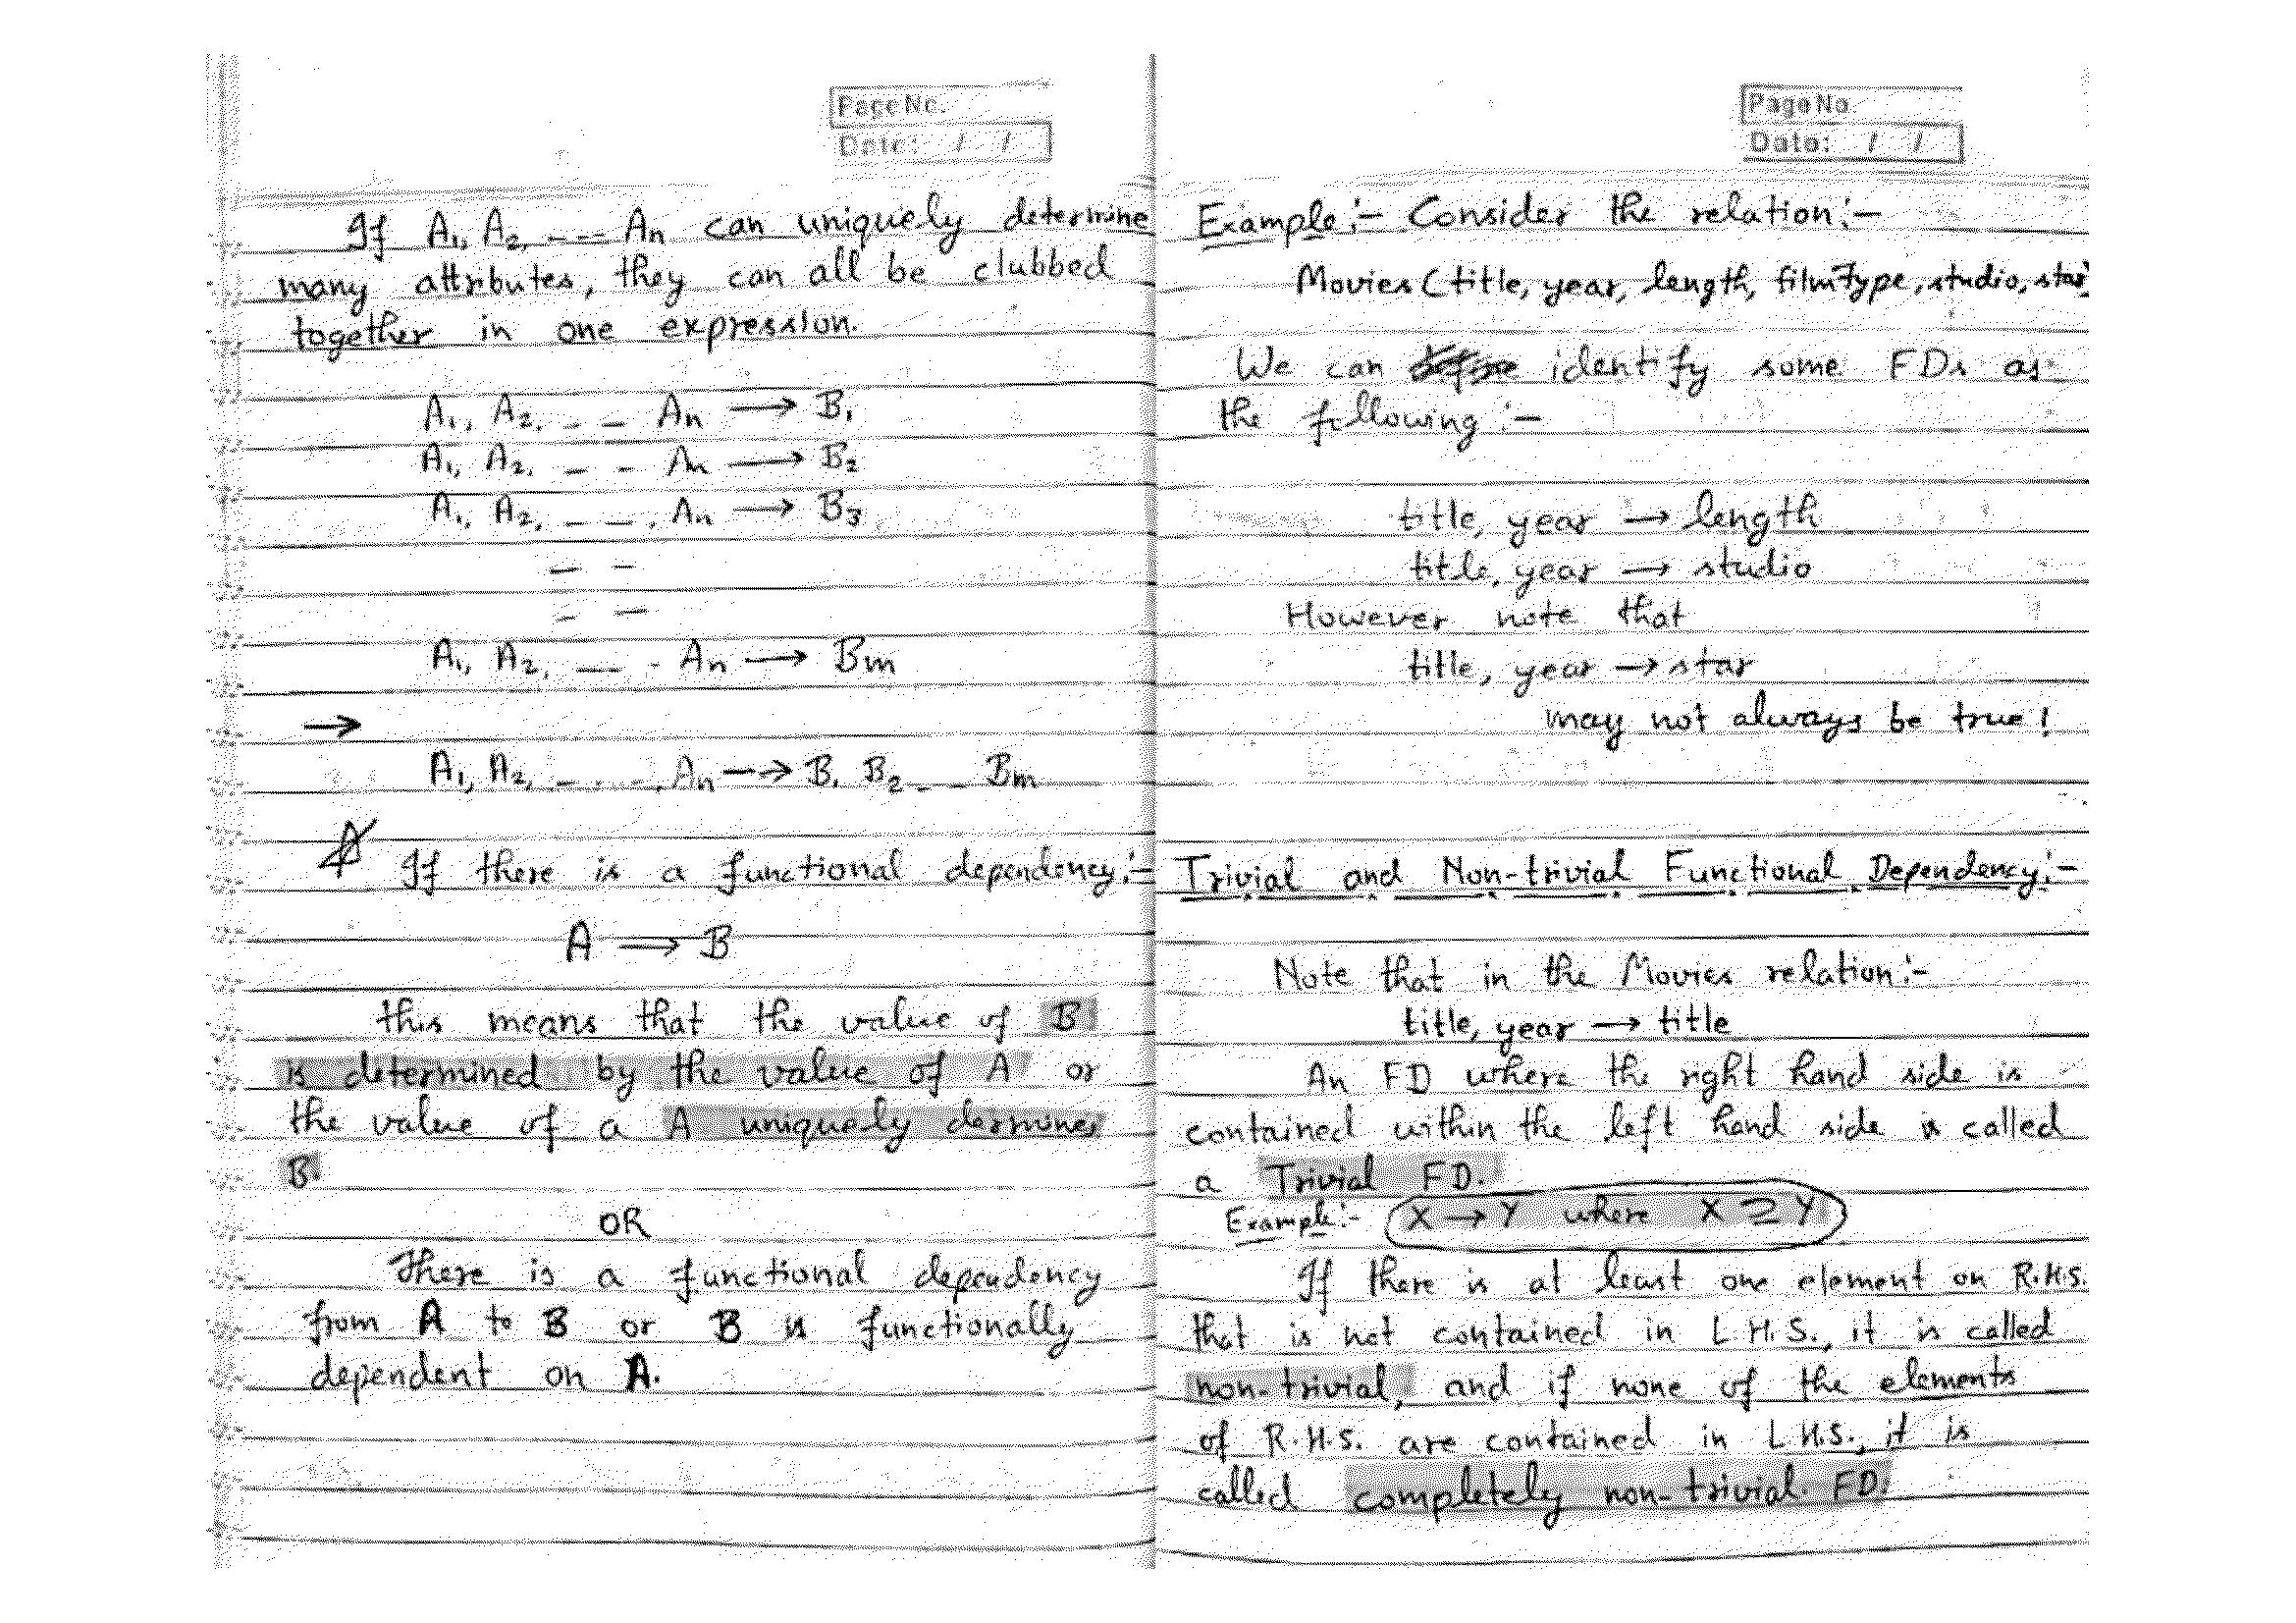 Page No.
Date: / /
If A1, A2, --- An can uniquely determine
many attributes, they can all be clubbed
together in one expression.
A1, A2, - - An → B1
A1, A2, - - An → B2
A1, A2, - - . An → B3
- -
- -
A1, A2, - - An → Bm
→
A1, A2, - - - , An → B1 B2 - - Bm
If there is a functional dependency:-
A → B
this means that the value of B
is determined by the value of A or
the value of a A uniquely dermines
B.
OR
There is a functional dependency
from A to B or B is functionally
dependent on A.
Page No.
Date: / /
Example:- Consider the relation:-
Movies (title, year, length, filmType, studio, star)
We can identify some FDs as
the following:-
title, year → length
title, year → studio
However note that
title, year → star
may not always be true!
Trivial and Non-trivial Functional Dependency:-
Note that in the Movies relation:-
title, year → title
An FD where the right hand side is
contained within the left hand side is called
a Trivial FD.
Example:- X → Y where X ⊇ Y
If there is at least one element on R.H.S.
that is not contained in L.H.S., it is called
non-trivial, and if none of the elements
of R.H.S. are contained in L.H.S., it is
called completely non-trivial FD.